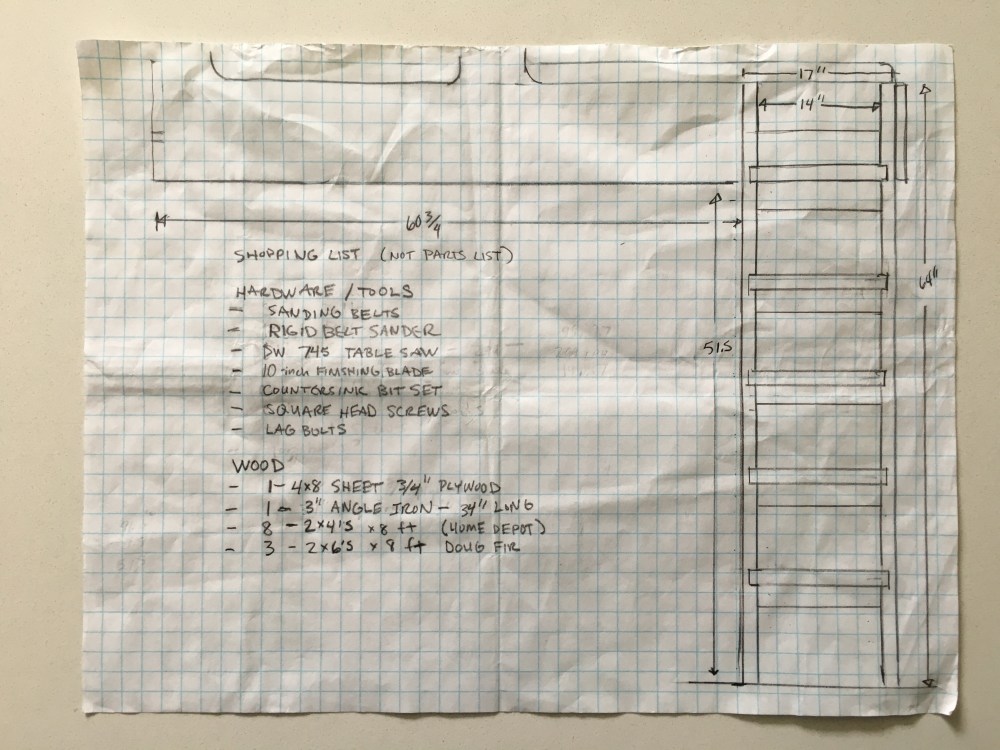 17"
14"
60 3/4
SHOPPING LIST (NOT PARTS LIST)
HARDWARE / TOOLS
- SANDING BELTS
- RIGID BELT SANDER
- DW 745 TABLE SAW
- 10-inch FINISHING BLADE
- COUNTERSINK BIT SET
- SQUARE HEAD SCREWS
- LAG BOLTS
64"
51.5
WOOD
- 1- 4x8 SHEET 3/4" PLYWOOD
- 1- 3" ANGLE IRON - 34" LONG
- 8 - 2x4'S x 8 ft (HOME DEPOT)
- 3 - 2x6'S x 8 ft DOUG FIR